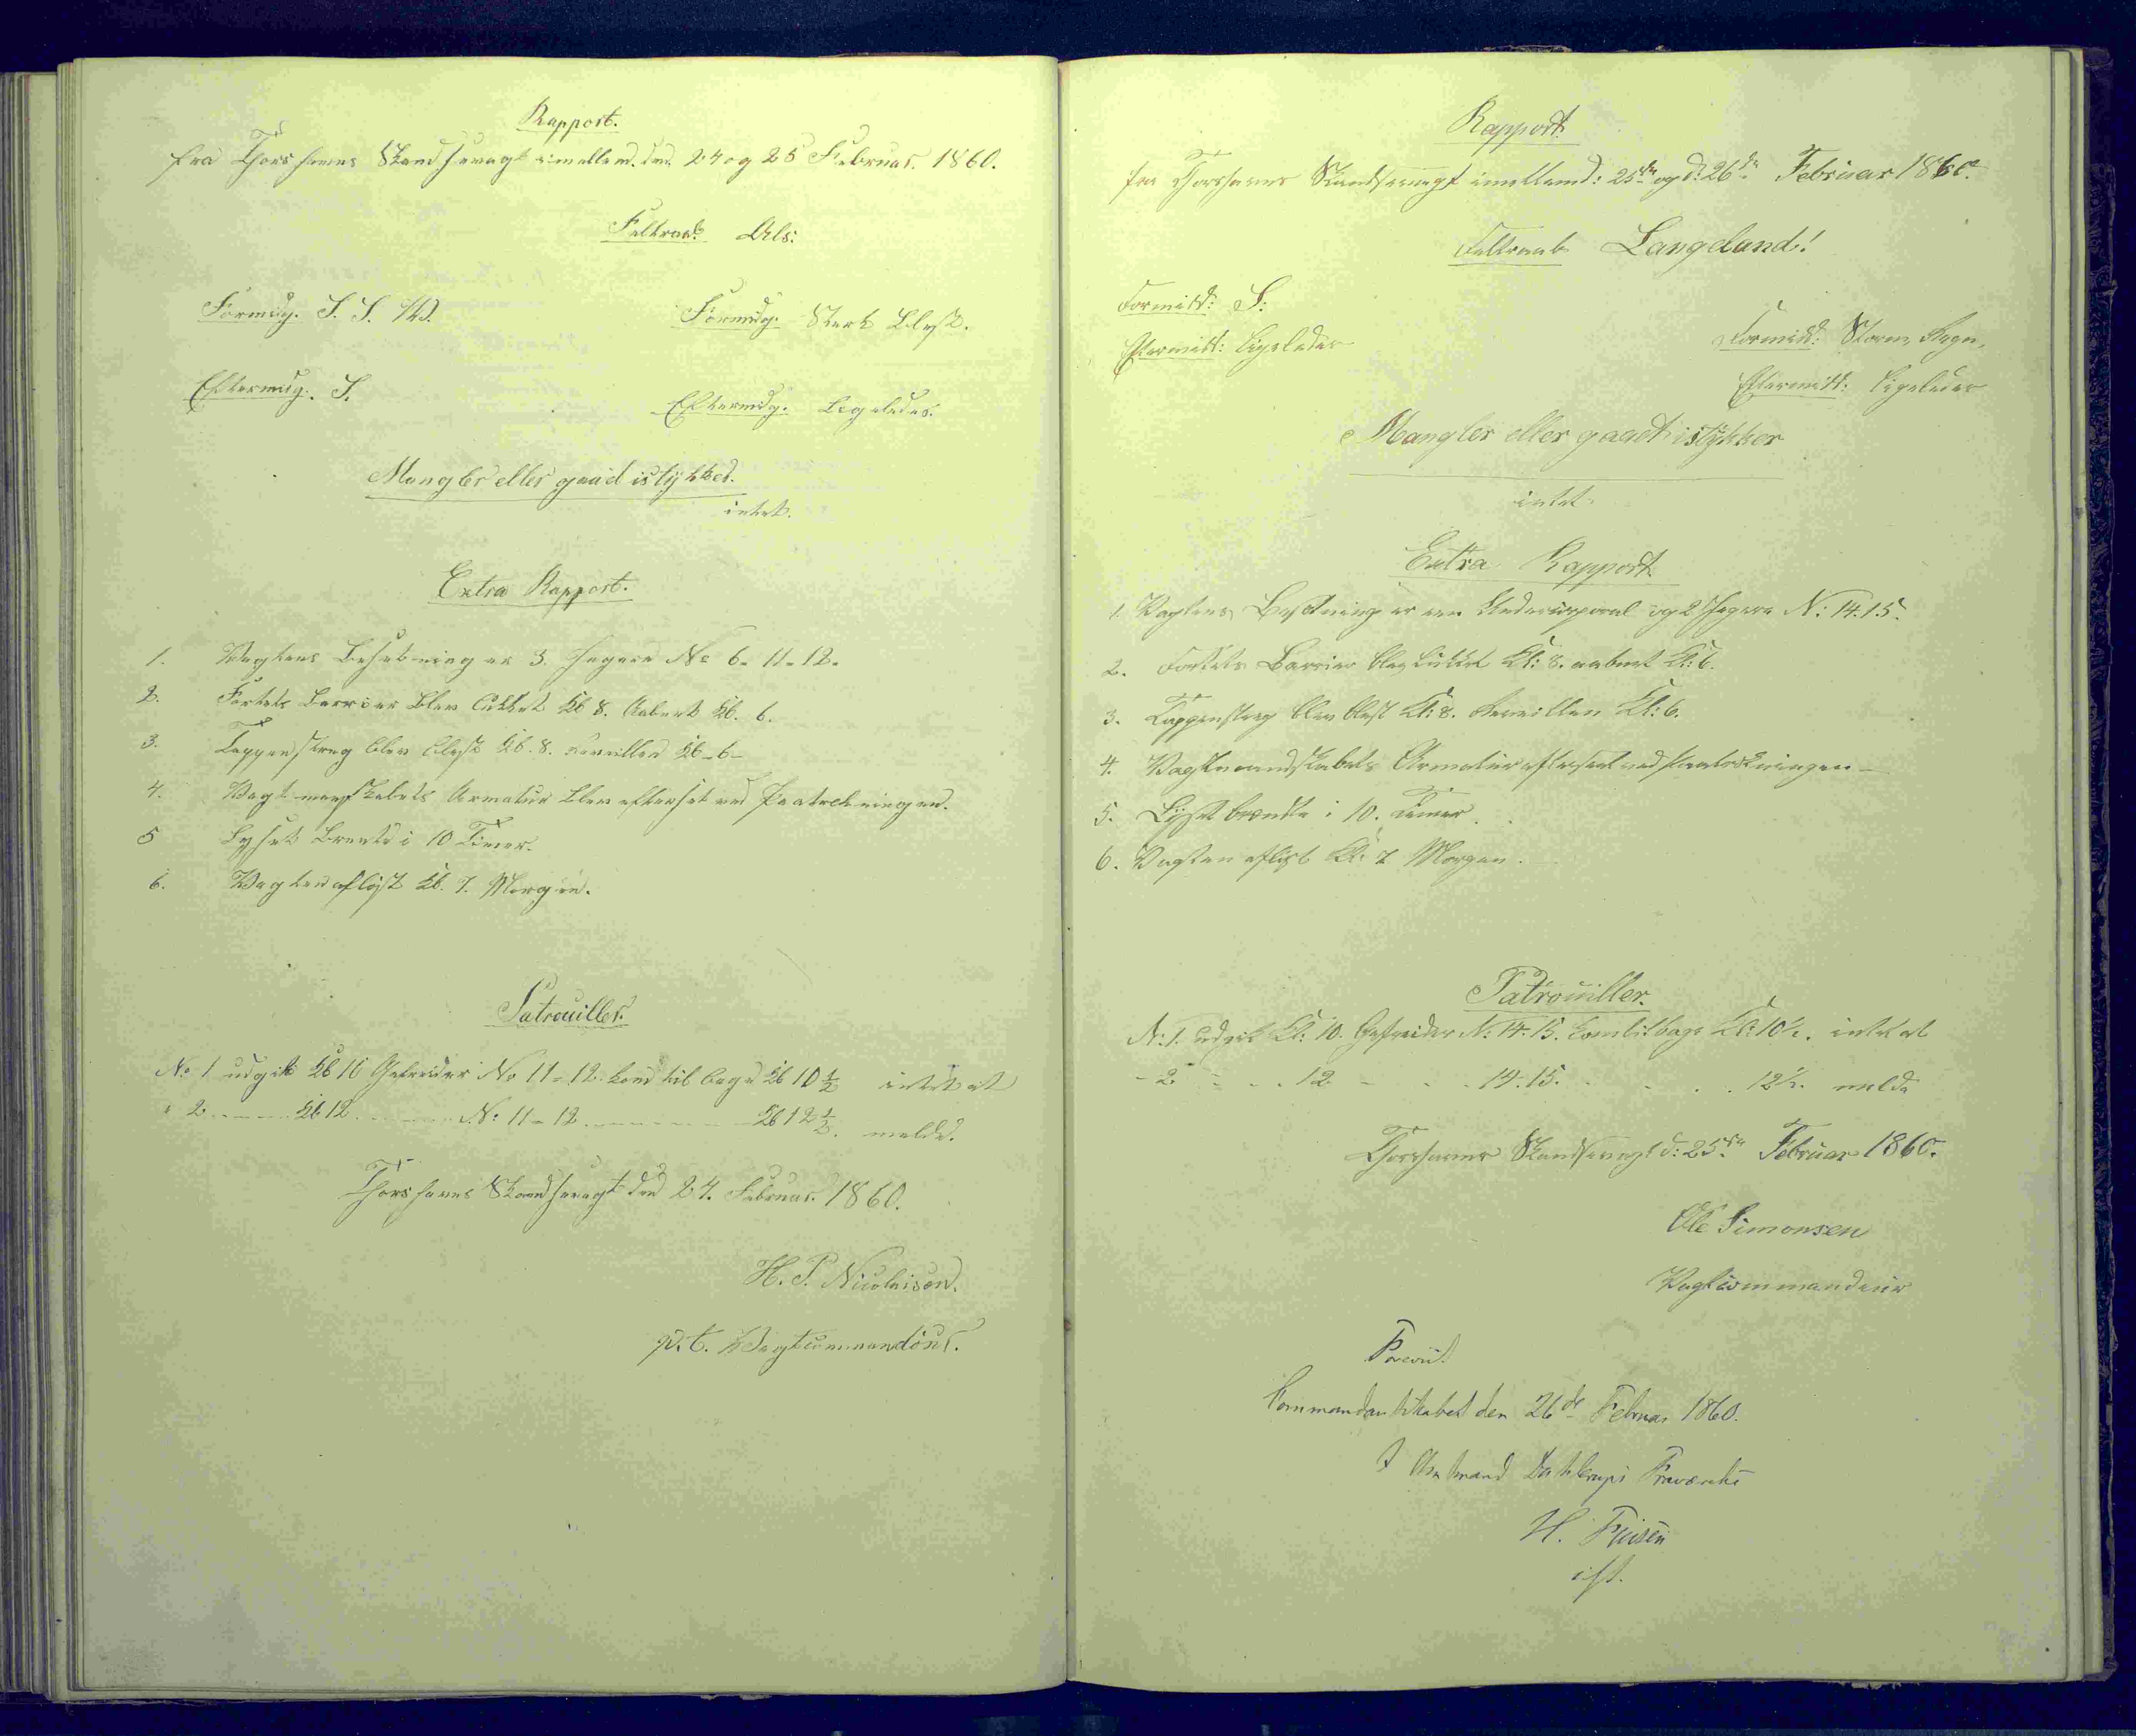 Rapport.
fra Thorshavns Skandsevagt imellem den 24 og 25 Februar. 1860.
Feltraab. Als:
Formidg. S. S. W.
Formidg. Sterk Blæst.
Eftermidg. S.
Eftermdg. Ligeledes.
Mangler eller gaaed istykker.
intet.
Extra Rapport.
1. Vagtens Besetning er 3. Jægere No 6-11-12.
2. Fortets Barrier blev lukket Kl 8. Aabent Kl. 6.
3. Tappenstreg blev blæst Kl. 8. Revillen Kl-6-
4. Vagtmanskabets Armatur blev efterset ved Paatrekningen.
5 Lyset brente i 10 Timer.
6. Vagten afløst Kl. 7. Morgen.
Patrouiller.
No 1 udgik Kl 10 Gefreider No 11-12 kom tilbage Kl 10 1/2 intet at
" 2 Kl 12 No 11-12 Kl 12 1/2. melde.
Thorshavns Skandsevagt den 24. Februar. 1860.
H. P. Nicolaisen.
p.t. Vagtcommandeur.
Rapport
fra Thorshavns Skandsevagt imellem d: 25de og d: 26de Februar 1860.
Feltraab Langeland!
Formidd: S:
Eftermidd: Ligeledes
Formidd: Storm, Regn,
Eftermidd: Ligeledes
Mangler eller gaaet istykker
intet
Extra Rapport.
1. Vagtens Besetning er en Undercorporal og 2 Jægere N: 14.15.
2. Fortets Barrier blev lukket Kl: 8. aabent Kl: 6.
3. Tappenstreg blev blæst Kl: 8. Reveillen Kl: 6.
4. Vagtmandskabets Armatur efterseet ved Paatrækningen -
5. Lyset brændte i 10. Timer.
6. Vagten afløst Kl: 7 Morgen.
Patrouiller.
N: 1. udgik Kl: 10. Gefreider N: 14.15. kom tilbage Kl: 10 1/2. intet at
- 2. 12 14.15. 12 1/2. melde
Thorshavns Skandsevagt d: 25de Februar 1860.
Ole Simonsen
Vagtcommandeur
Commandantskabet den 26de Februar 1860.
I Amtmand Dahlerups Fraværelse
H.